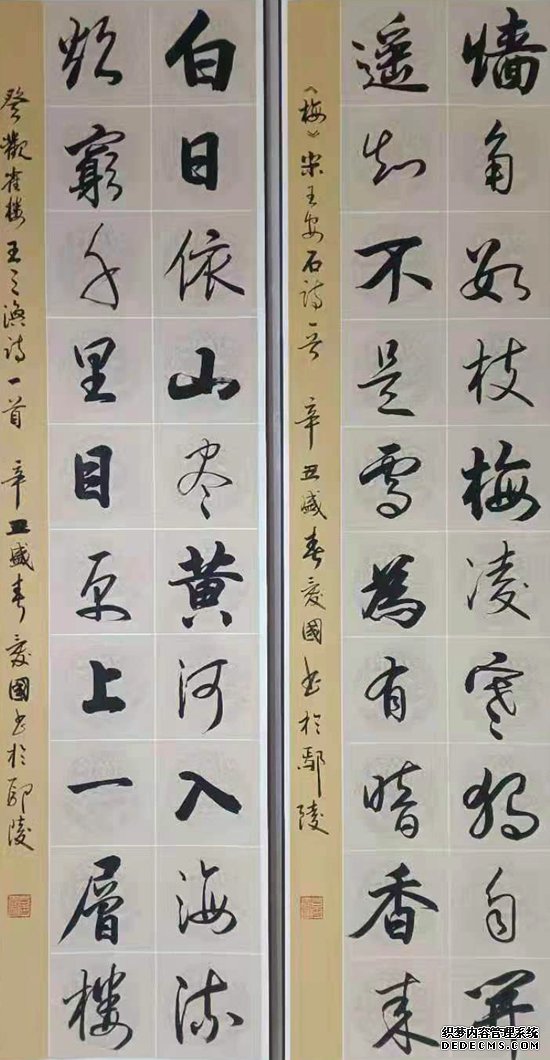 墙角数枝梅凌寒独自开
遥知不是雪為有暗香来
《梅》宋王安石诗一首 辛丑盛春爱國书於鄢陵
白日依山尽黄河入海流
欲窮千里目更上一層樓
登鹳雀楼 王之涣诗一首 辛丑盛春爱國书於鄢陵
织梦内容管理系统
DEDECMS.COM